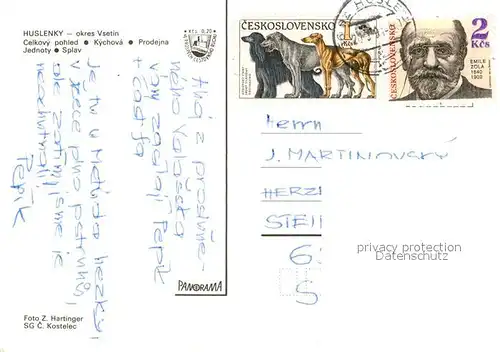 HUSLENKY – okres Vsetín
Celkový pohled ● Kýchová ● Prodejna
Jednoty ● Splav
Kčs 0,20
ČESKOSLOVENSKO
1
Kčs
2
Kčs
ČESKOSLOVENSKO
EMILE
ZOLA
1840
1902
Ahoj z prosluně-
ného Valašska
vám zasílají Pepík
+ Žofa
Je tu u hezky,
v řece plno pstruhů,
ale zatím jsme je
nechutnali!
Pepík
Herrn
J. MARTINOVSKÝ
HERZ
STEI
6
S
privacy protection
Datenschutz
PANORAMA
Foto Z. Hartinger
SG Č. Kostelec